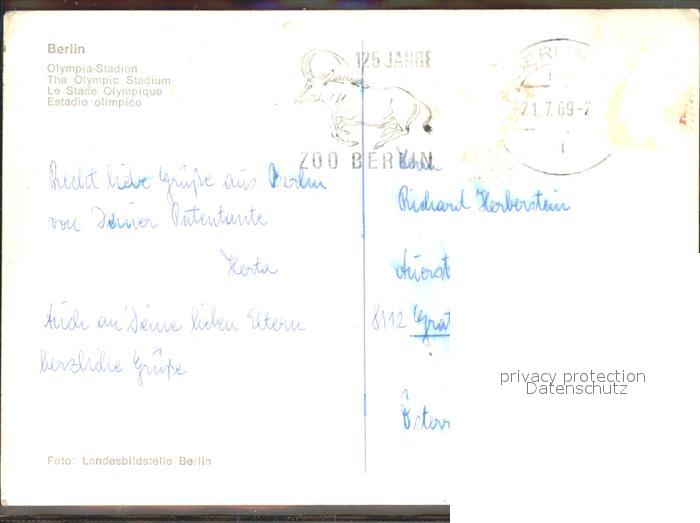 Berlin
Olympia-Stadion
The Olympic Stadium
Le Stade Olympique
Estadio olímpico
125 JAHRE
ZOO BERLIN
BERLIN
21.7.69-2
Recht liebe Grüße aus Berlin
von Deiner Patentante
Herta
Auch an Deine lieben Eltern
herzliche Grüße
Herrn
Richard Herberstein
8112 Grat
Österr
privacy protection
Datenschutz
Foto: Landesbildstelle Berlin